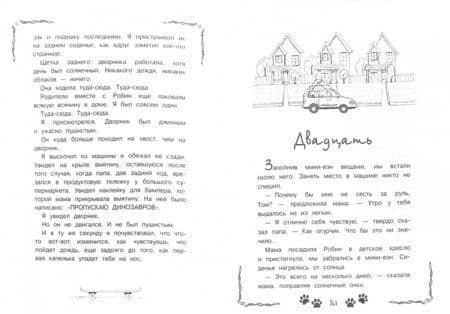 зак и подушку последними. Я пристраивал их
на заднем сиденье, как вдруг заметил кое-что
странное.
Щётка заднего дворника работала, хотя
день был солнечный. Никакого дождя, никаких
облаков — ничего.
Она ходила туда-сюда. Туда-сюда.
Родители вместе с Робин ещё паковали
всякую всячину в доме. Я был совсем один.
Туда-сюда. Туда-сюда.
Я присмотрелся. Дворник был длинным
и ужасно пушистым.
Он куда больше походил на хвост, чем на
дворник.
Я выскочил из машины и обежал её сзади.
Увидел на крыле вмятину, оставшуюся после
того случая, когда папа, дав задний ход, врезался
в продуктовую тележку у большого супермаркета.
Увидел наклейку для бампера,
которой мама прикрывала вмятину. На ней было
написано: «ПРОПУСКАЮ ДИНОЗАВРОВ».
Я увидел дворник.
Но он не двигался. И не был пушистым.
И в ту же секунду я почувствовал, что что-то
вот-вот изменится, как чувствуешь, что
пойдёт дождь, ещё задолго до того, как первая
капелька упадёт тебе на нос.
Двадцать
Заполнив мини-вэн вещами, мы встали
около него. Занять место в машине никто не
спешил.
— Почему бы мне не сесть за руль,
Том? — предложила мама. — Утро у тебя
выдалось не из лёгких.
— Я отлично себя чувствую, — твёрдо сказал
папа. — Как огурчик. Что бы это ни значило...
Мама посадила Робин в детское кресло
и пристегнула, мы забрались в мини-вэн. Сиденья
нагрелись от солнца.
— Это всего на несколько дней, — сказала
мама, поправляя солнечные очки.